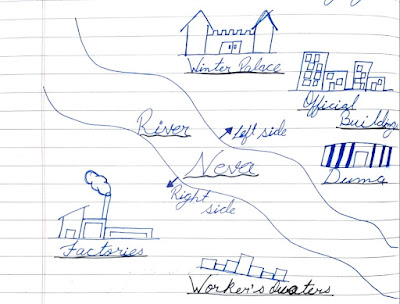 Winter Palace
Official
Building
River
Left side
Duma
Neva
Right
side
Factories
Worker's Quaters